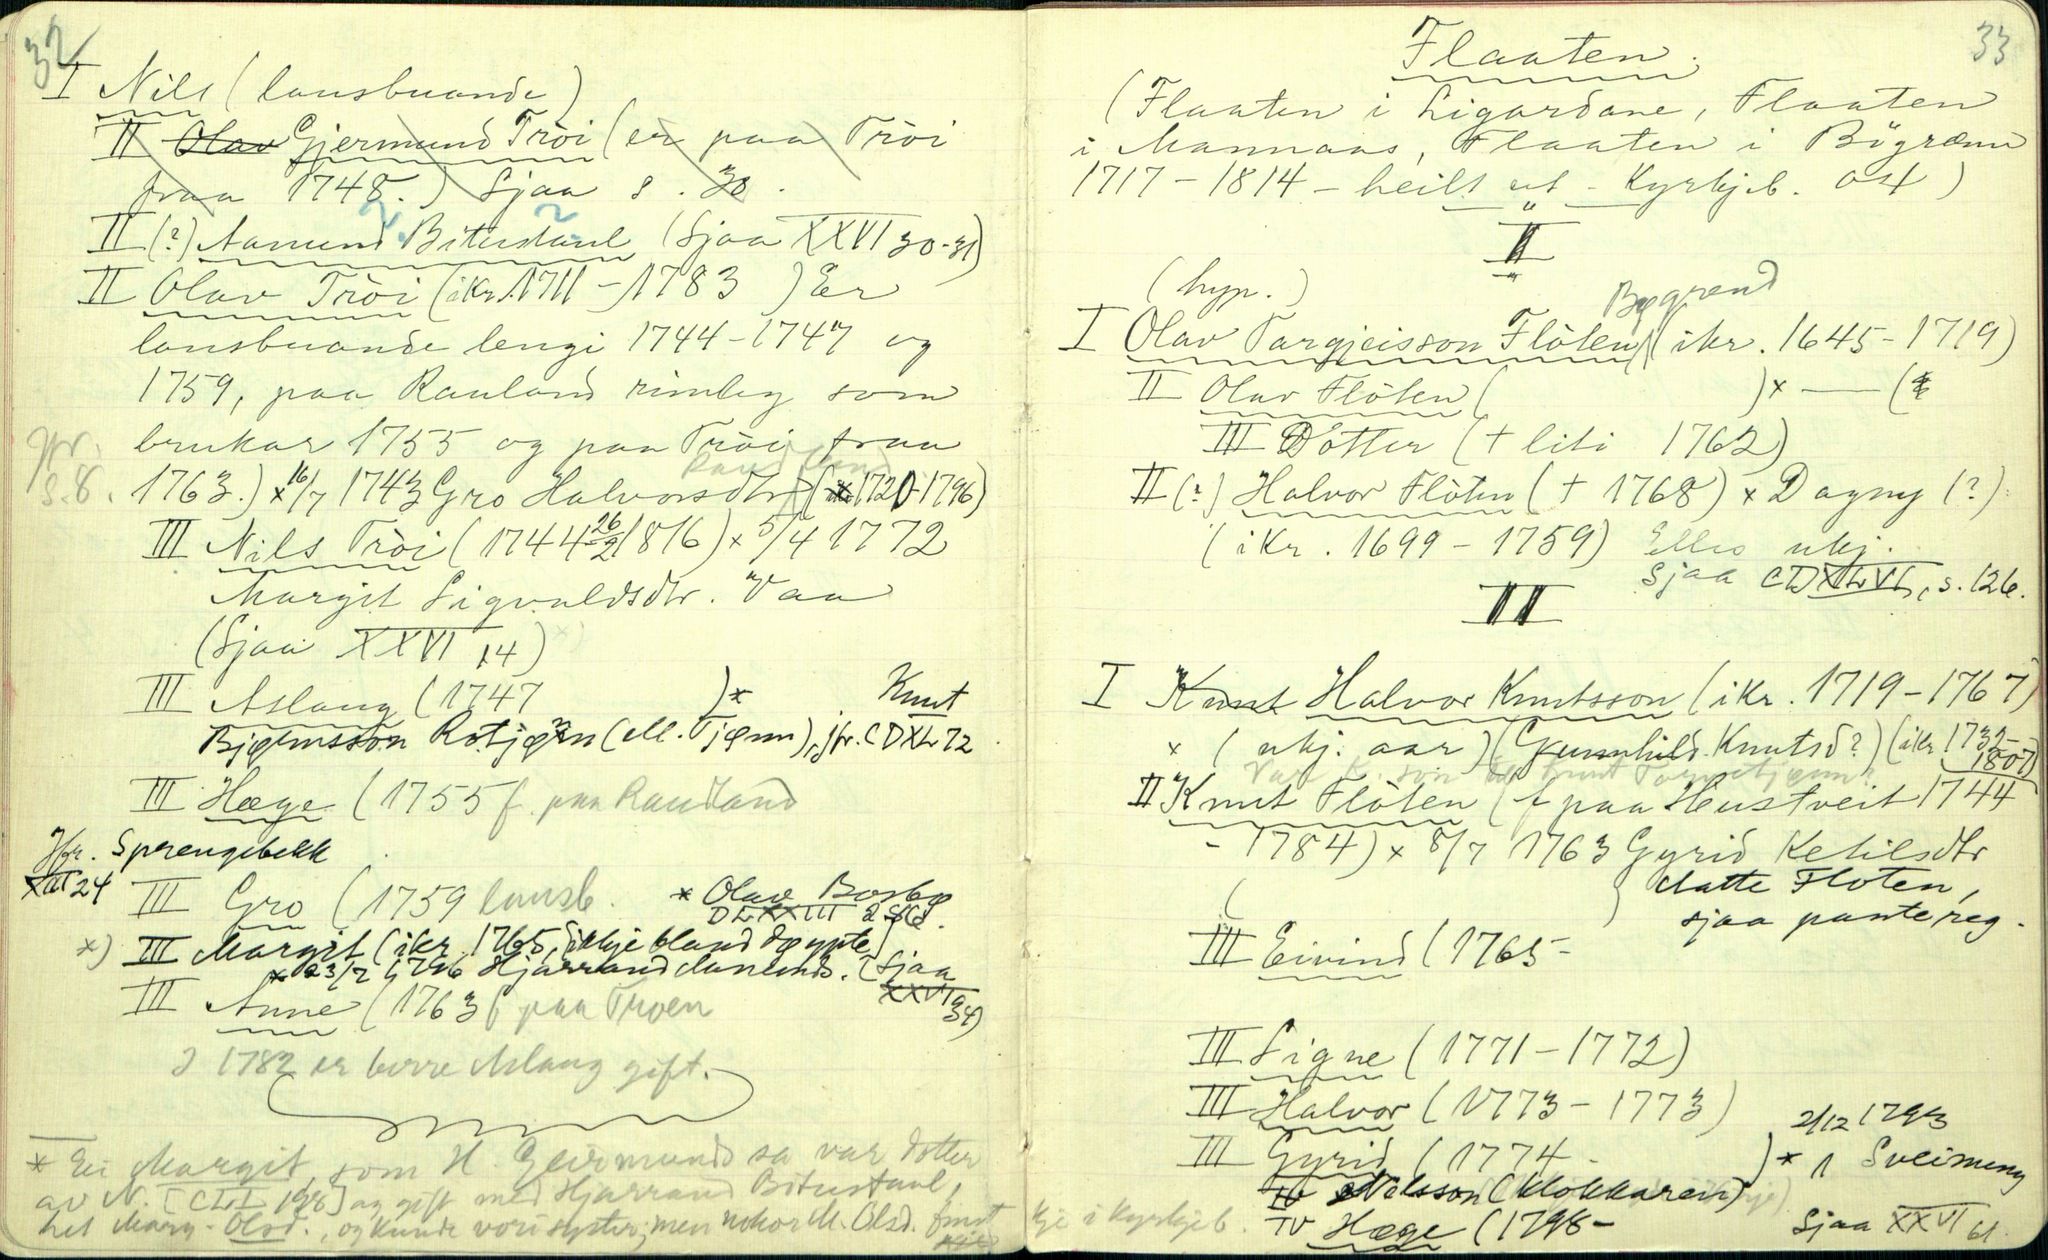 32
I Nils (lausbuande)
II Olav Gjermund Tròi (er paa Tròi
fraa 1748.) Sjaa s. 30.
II (?) Aamund Bitustaul (Sjaa XXVI 30-31)
II Olav Tròi (ikr. 1711 - 1783) Er
lausbuande lengi 1744-1747 og
1759, paa Rauland rimleg som
brukar 1755 og paa Tròi fraa
jfr. s. 8.
1763.) × 16/7 1743 Gro Halvorsdtr Rauland (1720-1796)
III Nils Tròi (1744 26/2 1816) × 5/4 1772
Margit Sigvaldsdtr. Vaa
(Sjaa XXVI 14) ×)
III Aslaug (1747 )× Knut
Bjørnsson Rotjønn (ell. Tjønn), jfr. CDXL 72
III Hæge (1755 f. paa Rauland
Jfr. Sprengebekk
XVI 24
III Gro (1759 lausb. × Olav Bosbø
DLXXIII
×) III Margit (ikr. 1765, ikkje bland døypte)
× 23/7 Hjarrand Aamunds. (Sjaa
XXVI 34)
III Anne (1763 f paa Troen
I 1782 er berre Aslaug gift.
× Ei Margit, som H. Geirmunds sa var dotter
av N. [CLI 198] og gift med Hjarrand Bitustaul,
het Marg. Olsd., og kunde vori syster; men nokor M. Olsd. finst
kje i Kyrkjeb.
33
Flaaten.
(Flaaten i Ligardane, Flaaten
i Mannaas, Flaaten i Bögrænn
1717 - 1814 - heilt ut - Kyrkjeb. O4)
I
(hyp.)
Bøgrend
I Olav Targjeisson Flòten (ikr. 1645 - 1719)
II Olav Flòten ( )× — (
III Dòtter († liti 1762)
II (?) Halvor Flòten († 1768) × Dagny (?)
(ikr. 1699 - 1759) Elles ukj.
Sjaa CDXLVI, s. 126.
II
I Knut Halvor Knutsson (ikr. 1719 - 1767)
× (ukj. aar) (Gunnhild Knutsd?) (ikr 1732-
1807)
II Knut Flòten (f paa Haustveit 1744
- 1784) × 8/7 1763 Gyrid Ketilsdtr
( ) datte Floten,
sjaa pantereg.
III Eivind (1765 -
III Signe (1771 - 1772)
III Halvor (1773 - 1773)
2/12 1793
III Gyrid (1774 - )× 1 Sveinung
Nilsson (klokkaren)
IV Hæge (1798 - Sjaa XXVI 61.